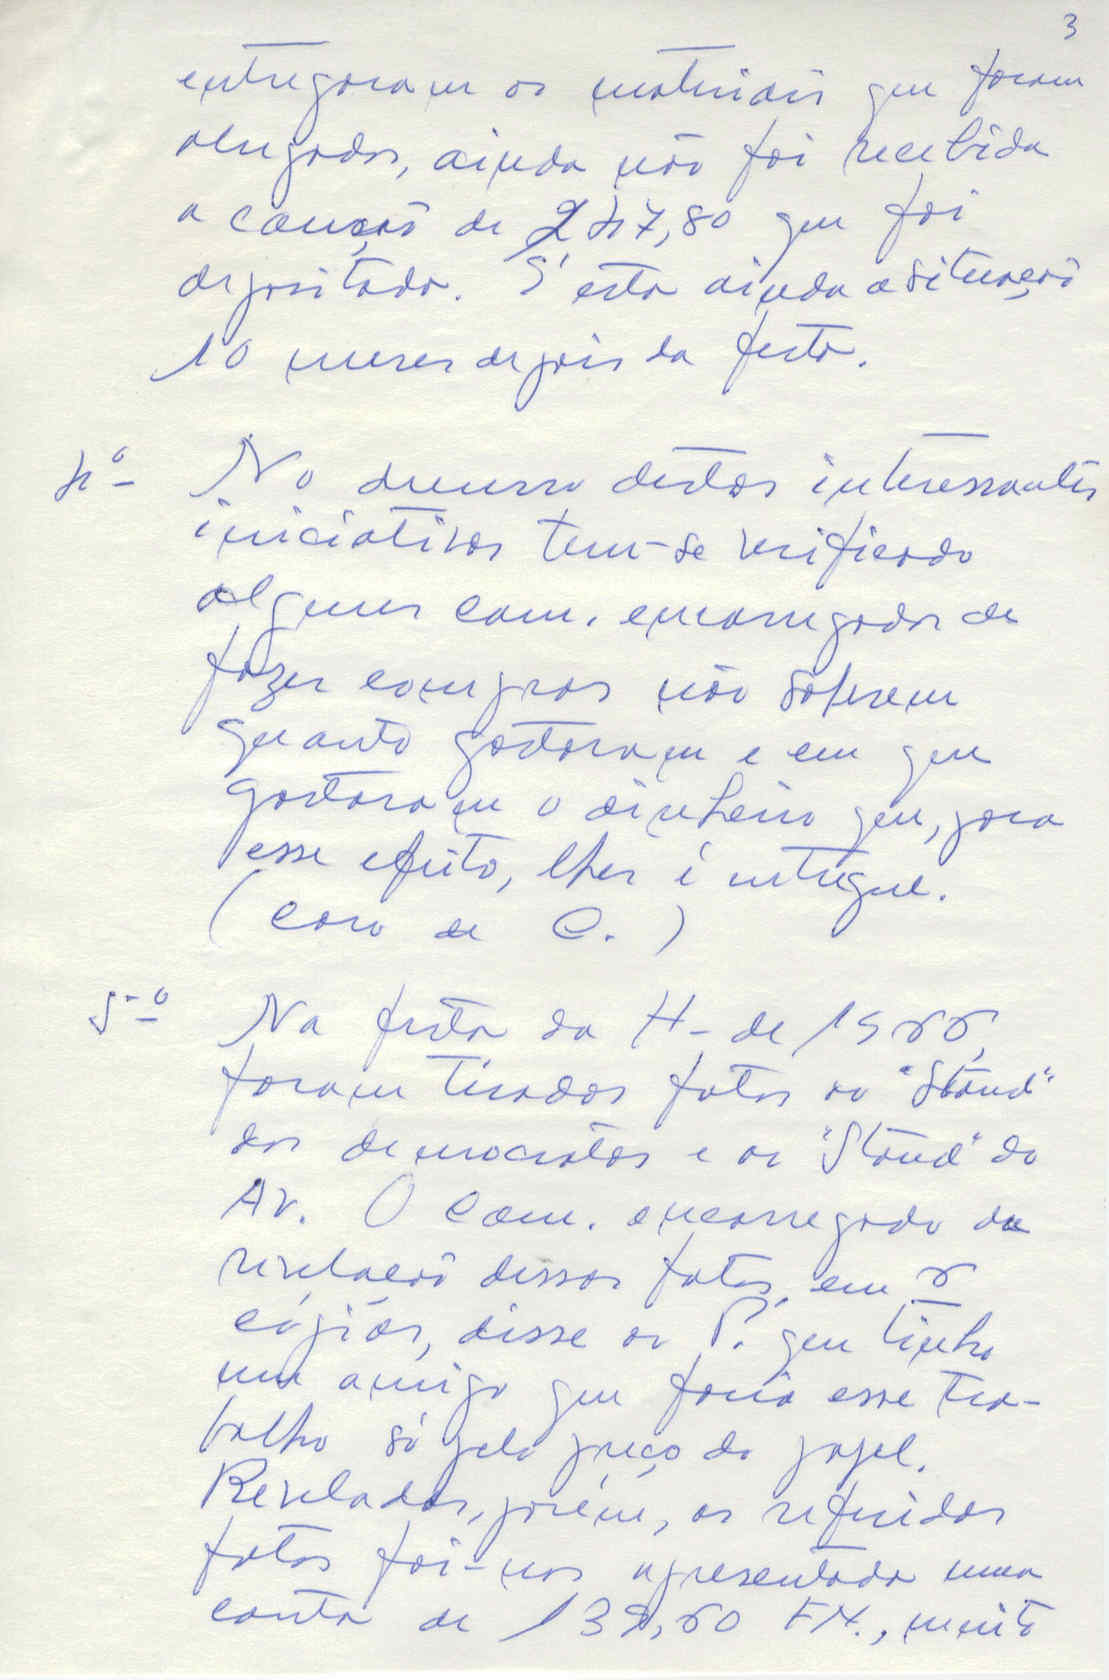 3
entregaram os materiais que foram
alugados, ainda não foi recebida
a caução de 247,80 que foi
depositada. É esta ainda a situação
10 meses depois da festa.
4º - No decurso destas interessantes
iniciativas tem-se verificado
alguns cam. encarregados de
fazer compras não saberem
quanto gastaram e em que
gastaram o dinheiro que, para
esse efeito, lhes é entregue.
(Caso de C.)
5-º Na festa da H- de 1966,
foram tiradas fotos ao "Stand"
dos democratas e ao "Stand" do
Av. O Cam. encarregado da
revelação dessas fotos, em 6
cópias, disse ao P. que tinha
um amigo que fazia esse tra-
balho só pelo preço do papel.
Reveladas, porém, as referidas
fotos foi-nos apresentada uma
conta de 139,60 FN., muito